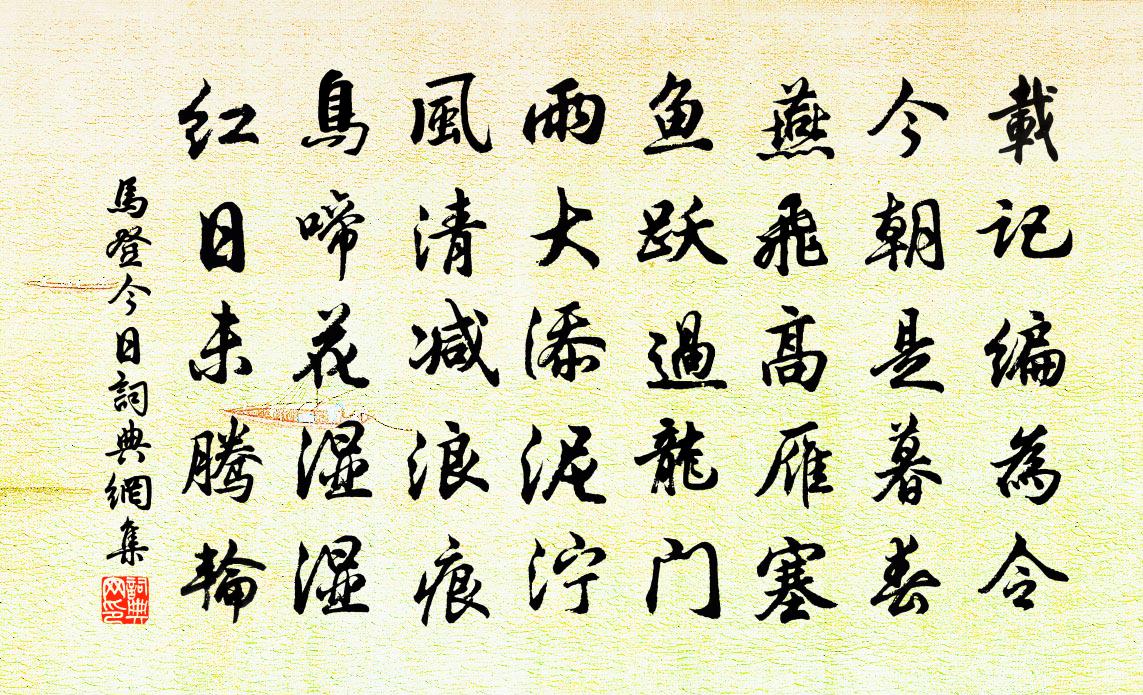 載記编為令
今朝是暮春
燕飛高雁塞
鱼跃過龍门
雨大添泥泞
風清减浪痕
鳥啼花湿湿
红日未腾輪
馬登今日詞典網集
詞典网印